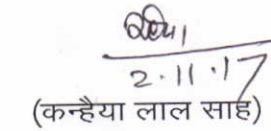 2.11.17
(कन्हैया लाल साह)